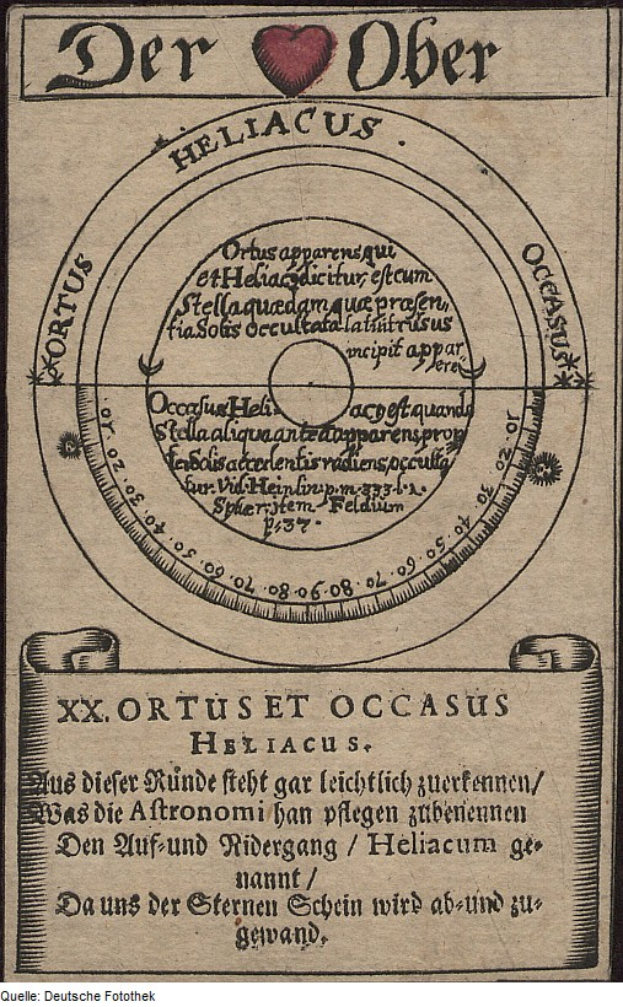 Der Ober
HELIACUS.
ORTUS
OCCASUS
Ortus apparens qui
et Heliac9 dicitur, est cum
Stella quædam quæ præsen,,
tia Solis occultata latuit rursus
incipit appar
ere.
Occasus Heli- acq est quando
Stella aliqua antea apparens prop
ter Solis radiens, occulta
tur. Vid. Heinlin. p. m. 333. l. 1.
Sphær. item Feldium
p. 37.
10. 20. 30. 40. 50. 60. 70. 80. 90. 80. 70. 60. 50. 40. 30. 20. 10.
XX. ORTUS ET OCCASUS
HELIACUS.
Aus dieser Runde steht gar leichtlich zuerkennen/
Was die Astronomi han pflegen zubenennen
Den Auf-und Nidergang / Heliacum ge-
nannt /
Da uns der Sternen Schein wird ab-und zu-
gewand.
Quelle: Deutsche Fotothek